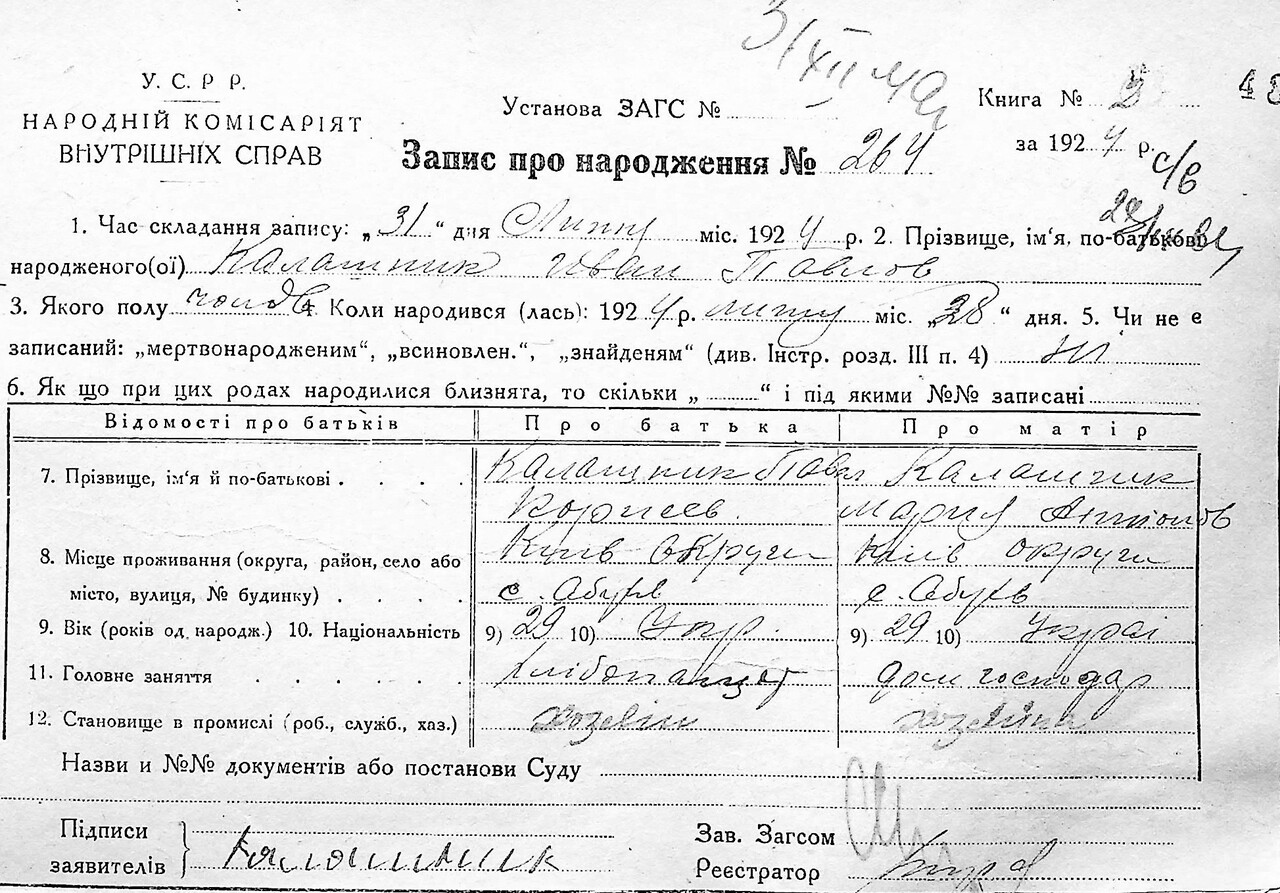 У. С. Р Р.
НАРОДНІЙ КОМІСАРІЯТ
ВНУТРІШНІХ СПРАВ
31/XII
Установа ЗАГС №
Книга № 5
48
за 1924 р.
Запис про народження № 264
с/в
1. Час складання запису: „31“ дня Липню міс. 1924 р. 2. Прізвище, ім'я, по-батькові
народженого(ої) Калашник Иван Павлов
3. Якого полу чолов 4. Коли народився (лась): 1924 р. липню міс. „28“ дня. 5. Чи не є
записаний: „мертвонародженим“, „всиновлен.“, „знайденям“ (див. Інстр. розд. III п. 4) ні
6. Як що при цих родах народилися близнята, то скільки „ “ і під якими №№ записані
Відомості про батьків Про батька Про матір
7. Прізвище, ім'я й по-батькові Калашник Павл Калашник
Мария
8. Місце проживання (округа, район, село або Київ округи Київ округи
місто, вулиця, № будинку) с. с.
9. Вік (років од народж.) 10. Національність 9) 29 10) Укр. 9) 29 10) Украі
11. Головне заняття дом господар
12. Становище в промислі (роб., служб., хаз.) хозеїн хозяйка
Назви и №№ документів або постанови Суду
Підписи
заявителів Калашник
Зав. Загсом
Реєстратор